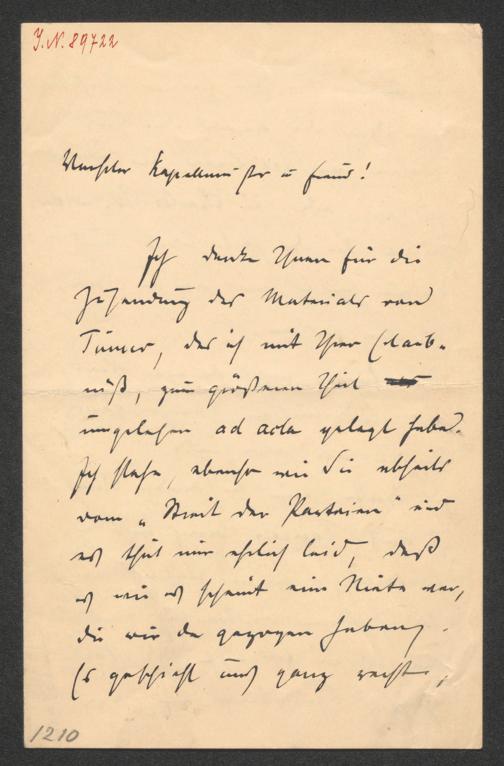 J.N. 89722
Verehrter Kapellmeister u Freund!
Ich danke Ihnen für die
Zusendung des Materials von
das ich mit Ihrer Erlaub-
niß, zum größeren Theil
ungelesen ad acta gelegt habe.
Ich stehe, ebenso wie Sie abseits
vom „Streit der Parteien" und
es thut mir ehrlich leid, daß
es wie es scheint eine Niete war,
die wir da gezogen haben.
Es geschieht uns ganz recht,
1210